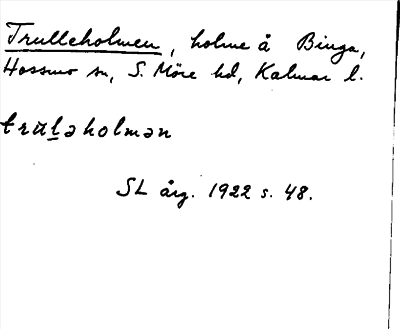 Trulleholmen, holme å Binga,
Hossmo sn, S. Möre hd, Kalmar l.
trɯləholmən
SL årg. 1922 s. 48.